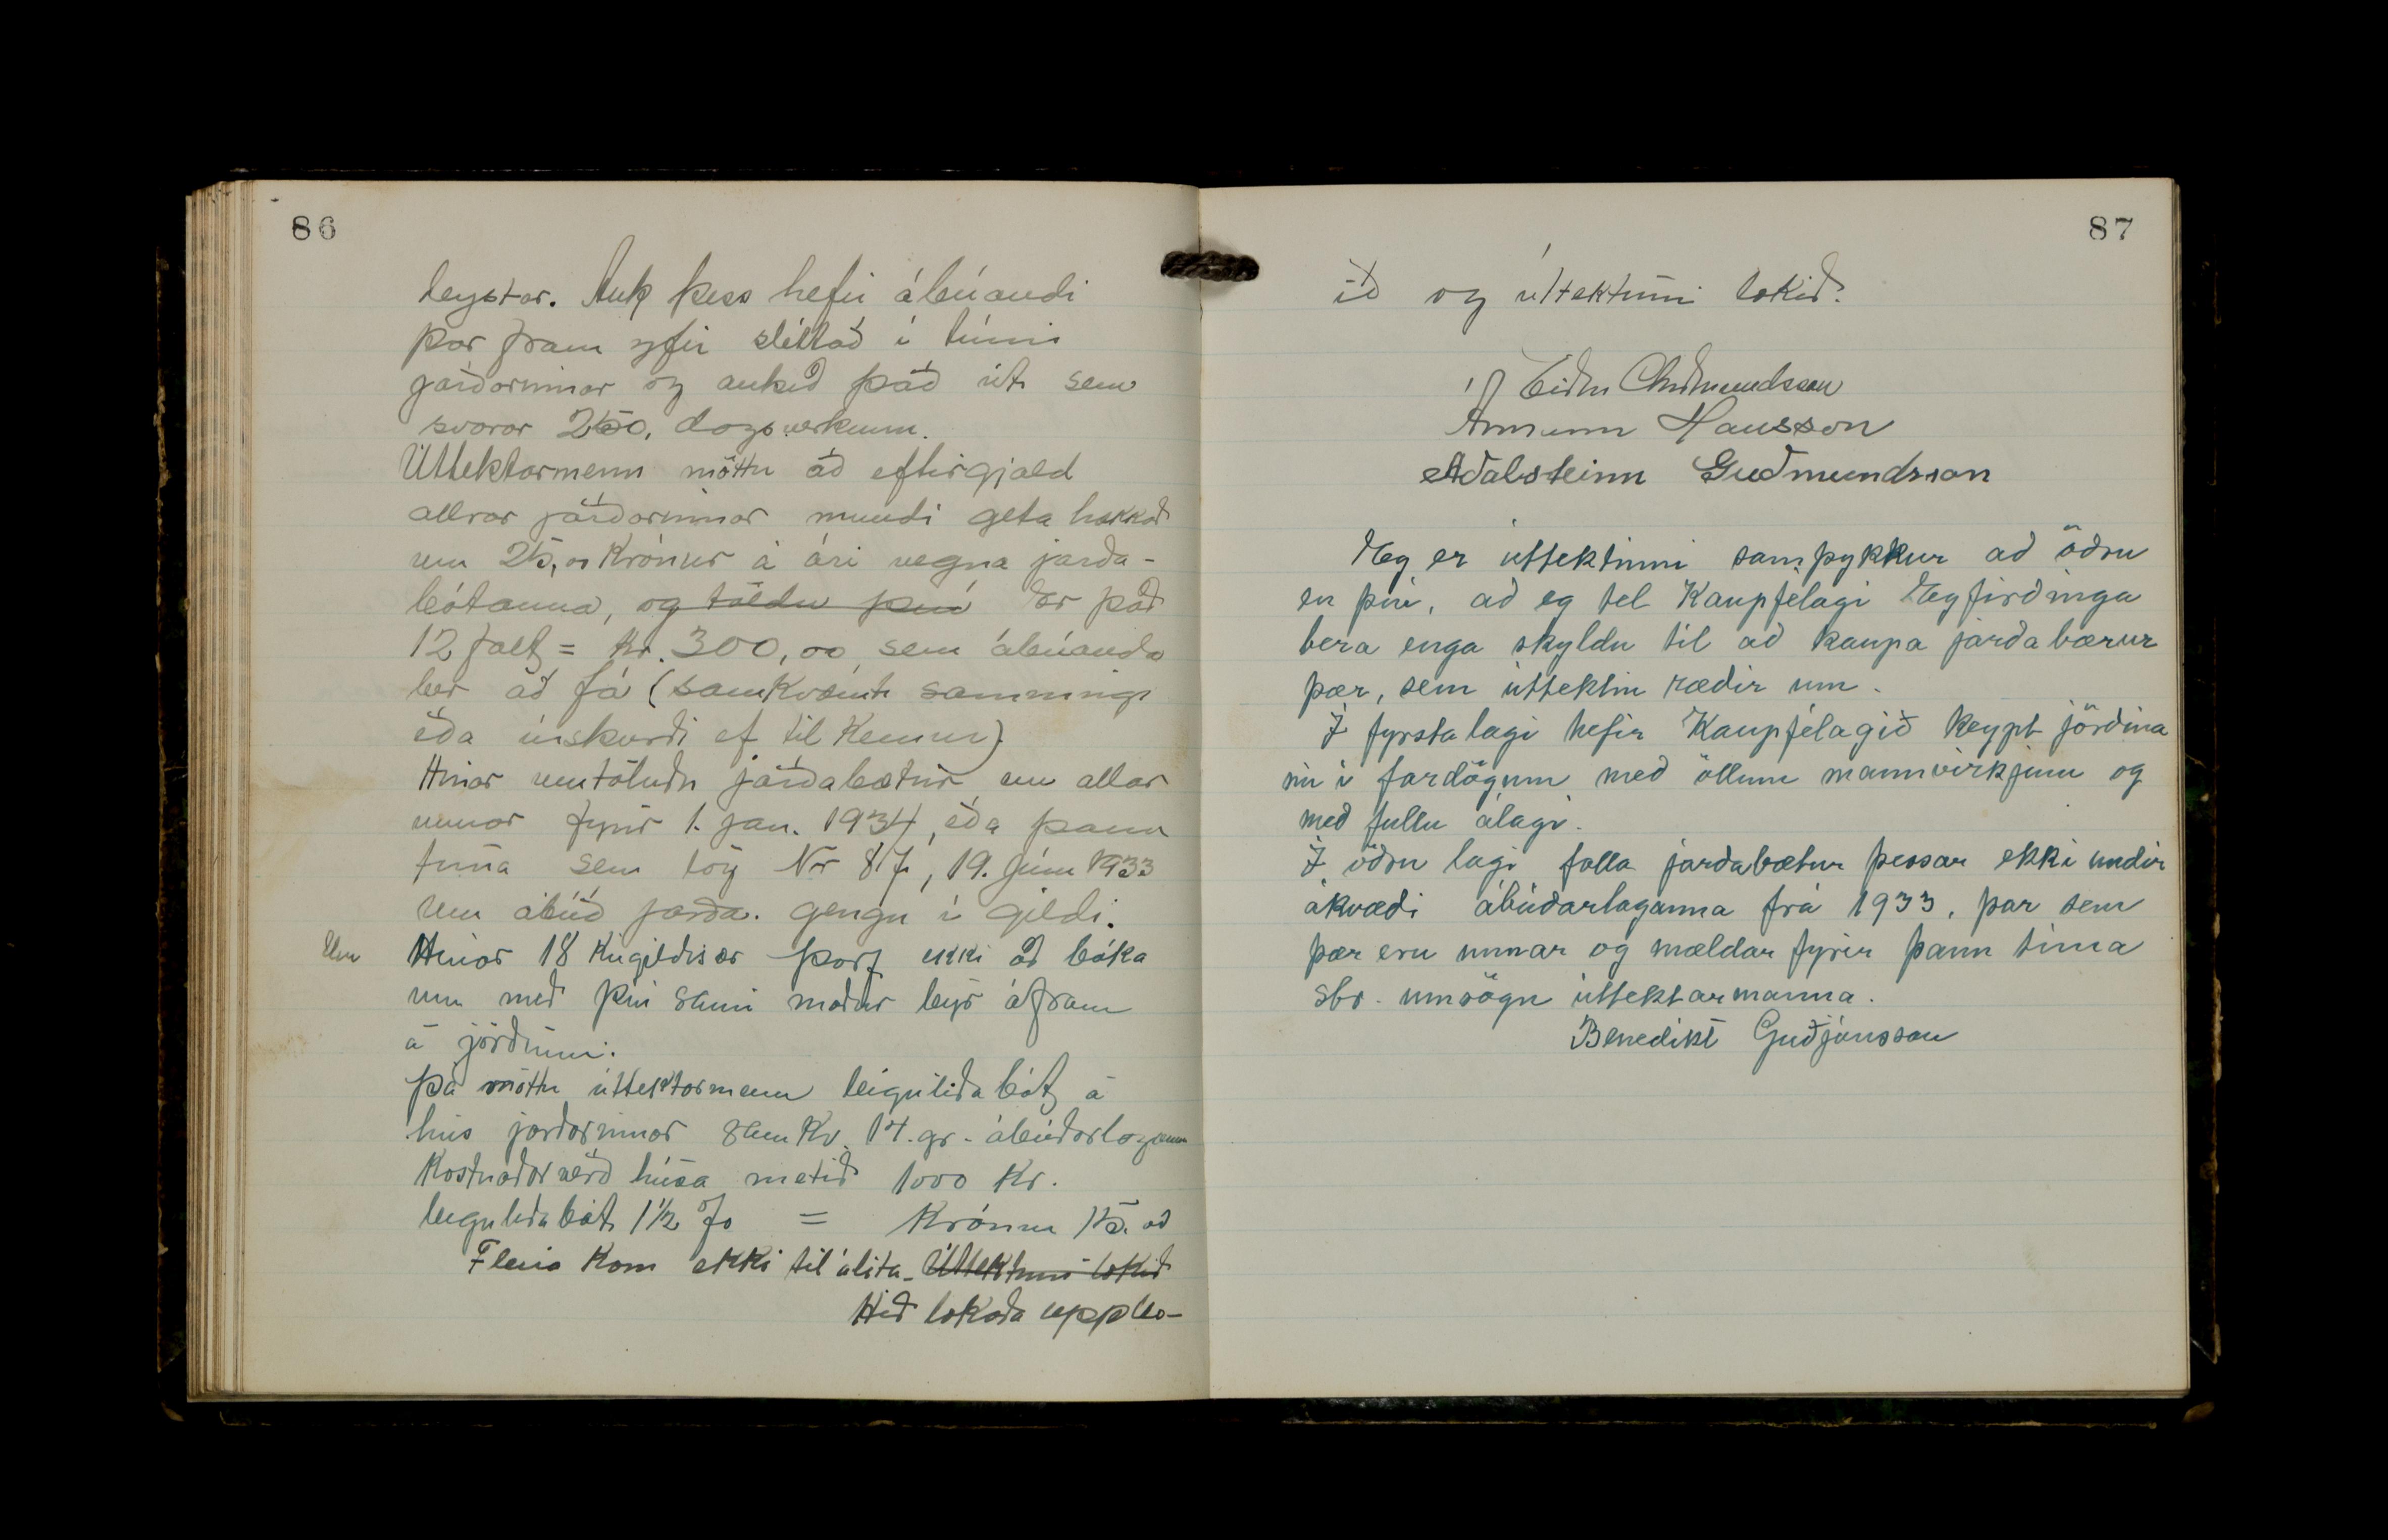 86
leystar. Auk þess hefir ábúandi
þar fram yfir sléttað í túni
jarðarinnar og aukið það út sem
svarar 250, dagsverkum.
Úttektarmenn máttu að eftirgjald
allrar jarðarinnar mundi geta hækkað
um 25,00 Krónur á ári vegna jarða-
bótanna, og töldu því Er það
12 falt = kr. 300,00 sem ábúanda
ber að fá (samkvæmt samningi
eða úrskurði ef til kemur).
Hinar umtöluðu jarðabætur eru allar
unnar fyrir 1. jan. 1934, eða þann
tíma sem lög Nr 87, 19. júní 1933
um ábúð jarða. gengu í gildi.
Um Hinar 18 kúgildisær þarf ekki að bóka
um með því sami maður býr áfram
á jörðinni.
Þá máttu úttektarmenn leiguliðabót á
hús jarðarinnar samkv. 14. gr. ábúðarlaganna
Kostnaðarverð húsa metið 1000 Kr.
leiguliðabót 1 1/2 % = Krónur 15.00
Fleira kom ekki til álita. Úttektinni lokið
Hið lokaða upples-
87
ið og úttektinni lokið.
Eiður Guðmundsson
Ármann Hansson
Aðalsteinn Guðmundsson
Eg er úttektinni samþykkur að öðru
en því, að eg tel Kaupfelagi Eyfirðinga
bera enga skyldu til að kaupa jarðabærur
þær, sem úttektin ræðir um.
Í fyrsta lagi hefir Kaupfélagið keypt jörðina
nú í fardögum með öllum mannvirkjum og
með fullu álagi.
Í öðru lagi falla jarðabætur þessar ekki undir
ákvæði ábúðarlaganna frá 1933, þar sem
þær eru unnar og mældar fyrir þann tíma
sbr. umsögn úttektarmanna.
Benedikt Guðjónsson